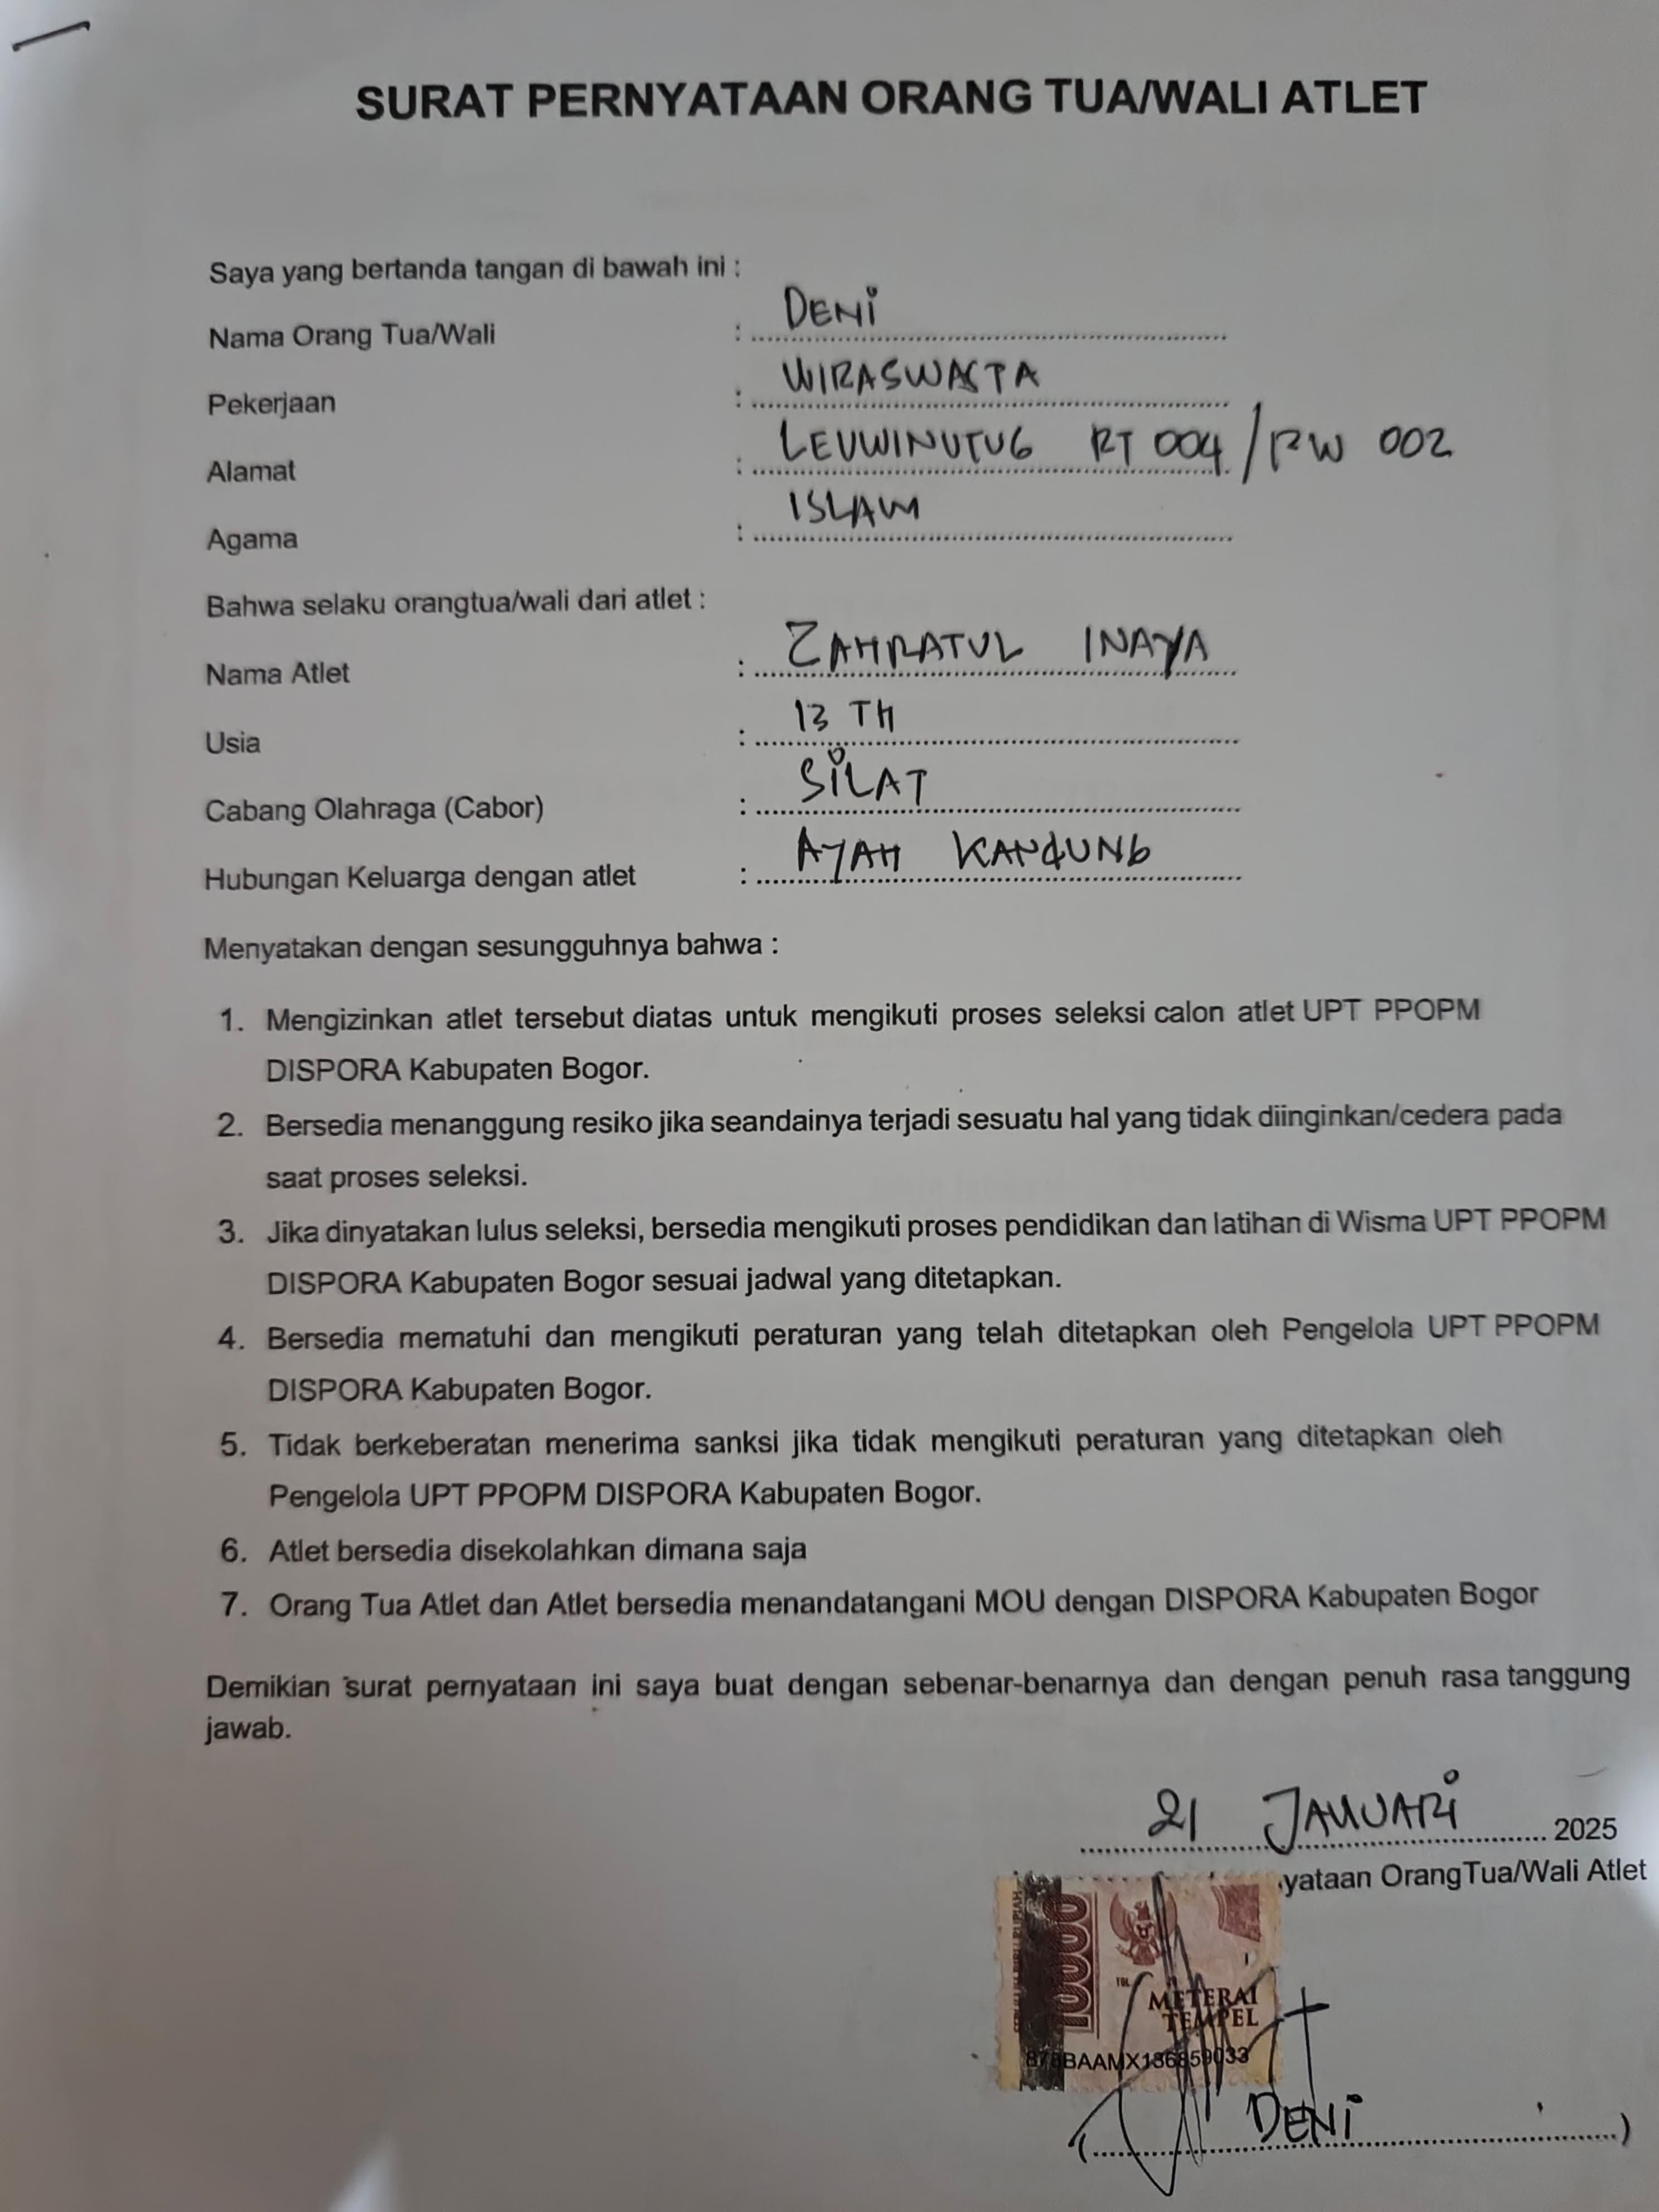 SURAT PERNYATAAN ORANG TUA/WALI ATLET
Saya yang bertanda tangan di bawah ini :
Nama Orang Tua/Wali : DENI
Pekerjaan : WIRASWASTA
Alamat : LEUWINUTUG RT 004/RW 002
Agama : ISLAM
Bahwa selaku orangtua/wali dari atlet :
Nama Atlet : ZAHRATUL INAYA
Usia : 13 TH
Cabang Olahraga (Cabor) : SILAT
Hubungan Keluarga dengan atlet : AYAH KANDUNG
Menyatakan dengan sesungguhnya bahwa :
1. Mengizinkan atlet tersebut diatas untuk mengikuti proses seleksi calon atlet UPT PPOPM
DISPORA Kabupaten Bogor.
2. Bersedia menanggung resiko jika seandainya terjadi sesuatu hal yang tidak diinginkan/cedera pada
saat proses seleksi.
3. Jika dinyatakan lulus seleksi, bersedia mengikuti proses pendidikan dan latihan di Wisma UPT PPOPM
DISPORA Kabupaten Bogor sesuai jadwal yang ditetapkan.
4. Bersedia mematuhi dan mengikuti peraturan yang telah ditetapkan oleh Pengelola UPT PPOPM
DISPORA Kabupaten Bogor.
5. Tidak berkeberatan menerima sanksi jika tidak mengikuti peraturan yang ditetapkan oleh
Pengelola UPT PPOPM DISPORA Kabupaten Bogor.
6. Atlet bersedia disekolahkan dimana saja
7. Orang Tua Atlet dan Atlet bersedia menandatangani MOU dengan DISPORA Kabupaten Bogor
Demikian surat pernyataan ini saya buat dengan sebenar-benarnya dan dengan penuh rasa tanggung
jawab.
21 JANUARI 2025
yataan OrangTua/Wali Atlet
10000
TGL.
METERAI
TEMPEL
(DENI)